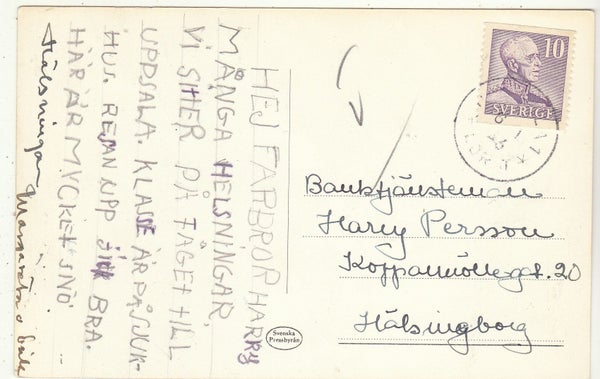 HEJ FARBROR HARRY
MÅNGA HELSNINGAR,
VI SITTER PÅ TÅGET TILL
UPPSALA. KLASSE ÄR PÅ SJUK-
HUS. RESAN UPP GICK BRA.
HÄR ÄR MYCKET SNÖ
Hälsningar
10
SVERIGE
Banktjänsteman
Harry Persson
Koppamöllegt. 20
Hälsingborg
Svenska
Pressbyrån